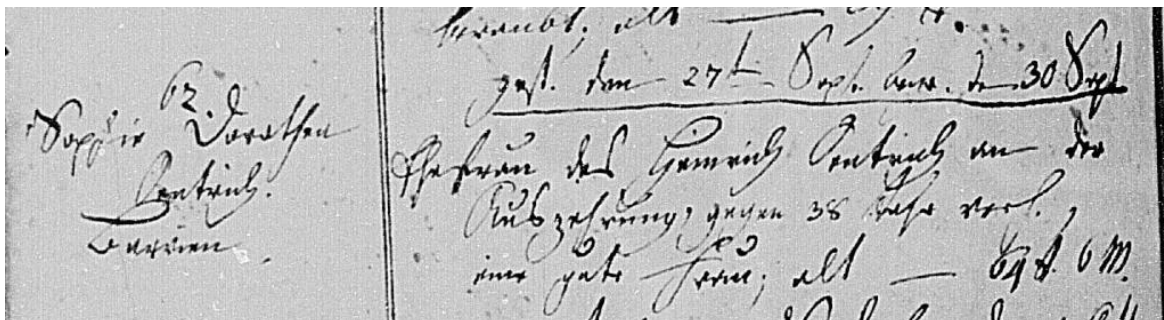 62.
Sophie Dorothea
Barrien
alt
gest. den 27t Sept. beer. den 30 Sept
Ehefrau des Heinrich an der
Auszehrung, gegen 38 Jahr verh.,
eine gute Frau; alt — 64 J. 6 M.